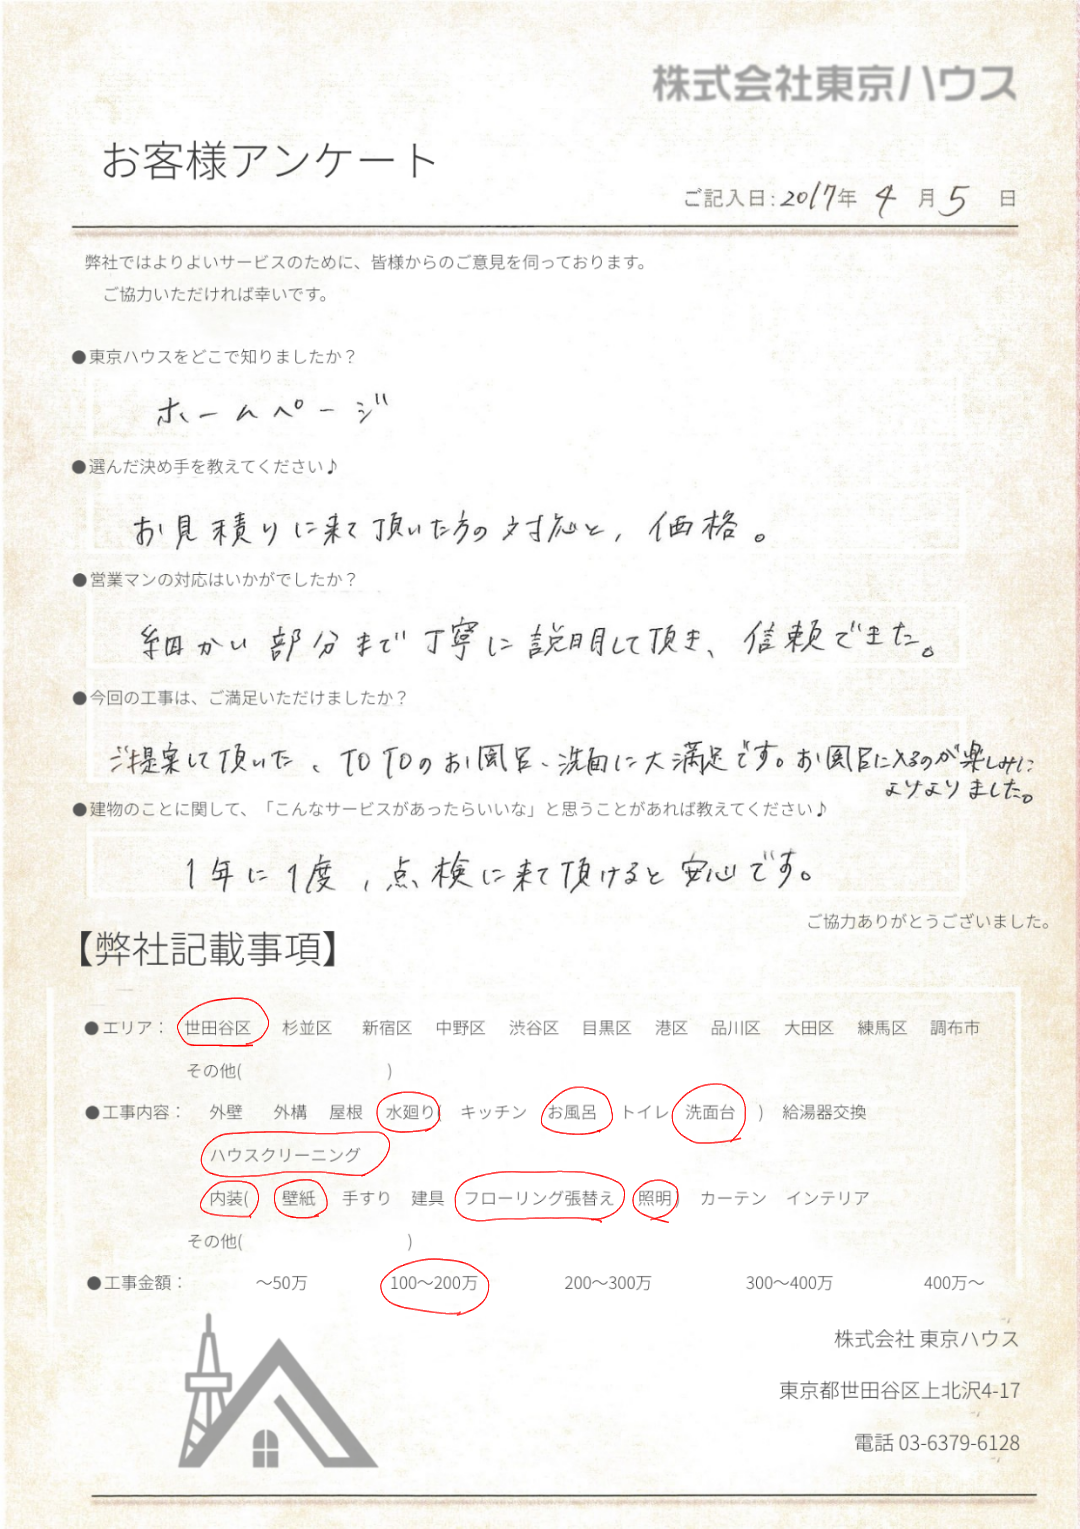 株式会社東京ハウス
お客様アンケート
ご記入日:2017年 4 月 5 日
弊社ではよりよいサービスのために、皆様からのご意見を伺っております。
ご協力いただければ幸いです。
●東京ハウスをどこで知りましたか？
ホームページ
●選んだ決め手を教えてください♪
お見積りに来て頂いた方の対応と,価格。
●営業マンの対応はいかがでしたか？
細かい部分まで丁寧に説明して頂き、信頼できた。
●今回の工事は、ご満足いただけましたか？
ご提案して頂いた、TOTOのお風呂、洗面に大満足です。お風呂に入るのが楽しみに
よりなりました。
●建物のことに関して、「こんなサービスがあったらいいな」と思うことがあれば教えてください♪
1年に1度,点検に来て頂けると安心です。
ご協力ありがとうございました。
【弊社記載事項】
●エリア： 世田谷区 杉並区 新宿区 中野区 渋谷区 目黒区 港区 品川区 大田区 練馬区 調布市
その他( )
●工事内容： 外壁 外構 屋根 水廻り( キッチン お風呂 トイレ 洗面台 ) 給湯器交換
ハウスクリーニング
内装( 壁紙 手すり 建具 フローリング張替え 照明) カーテン インテリア
その他( )
●工事金額： ～50万 100～200万 200～300万 300～400万 400万～
株式会社 東京ハウス
東京都世田谷区上北沢4-17
電話 03-6379-6128